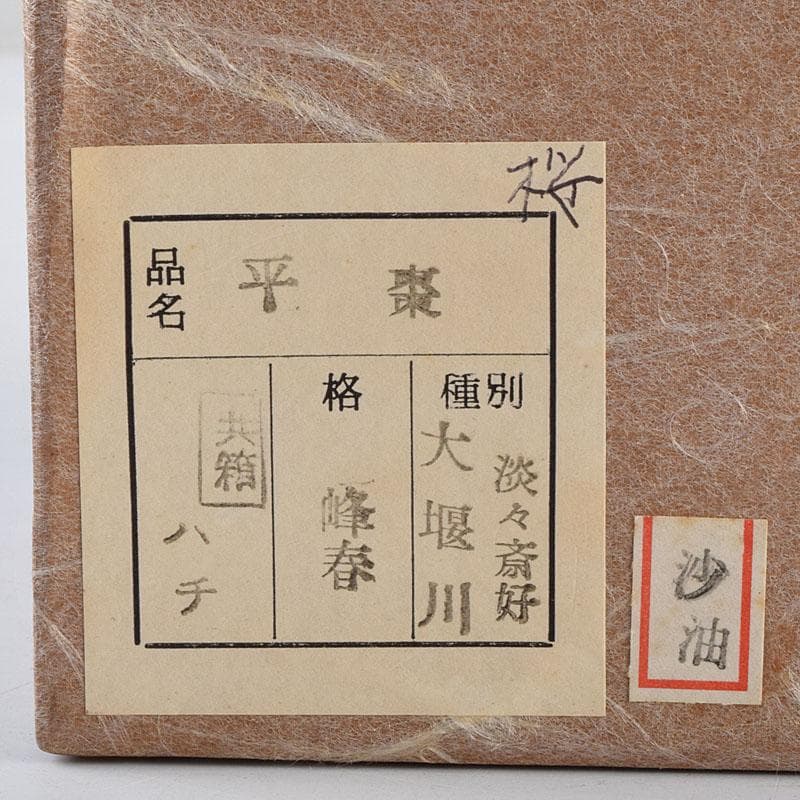 桜
品名
平棗
種別
淡々斎好
大堰川
格
峰春
共箱
ハチ
沙油